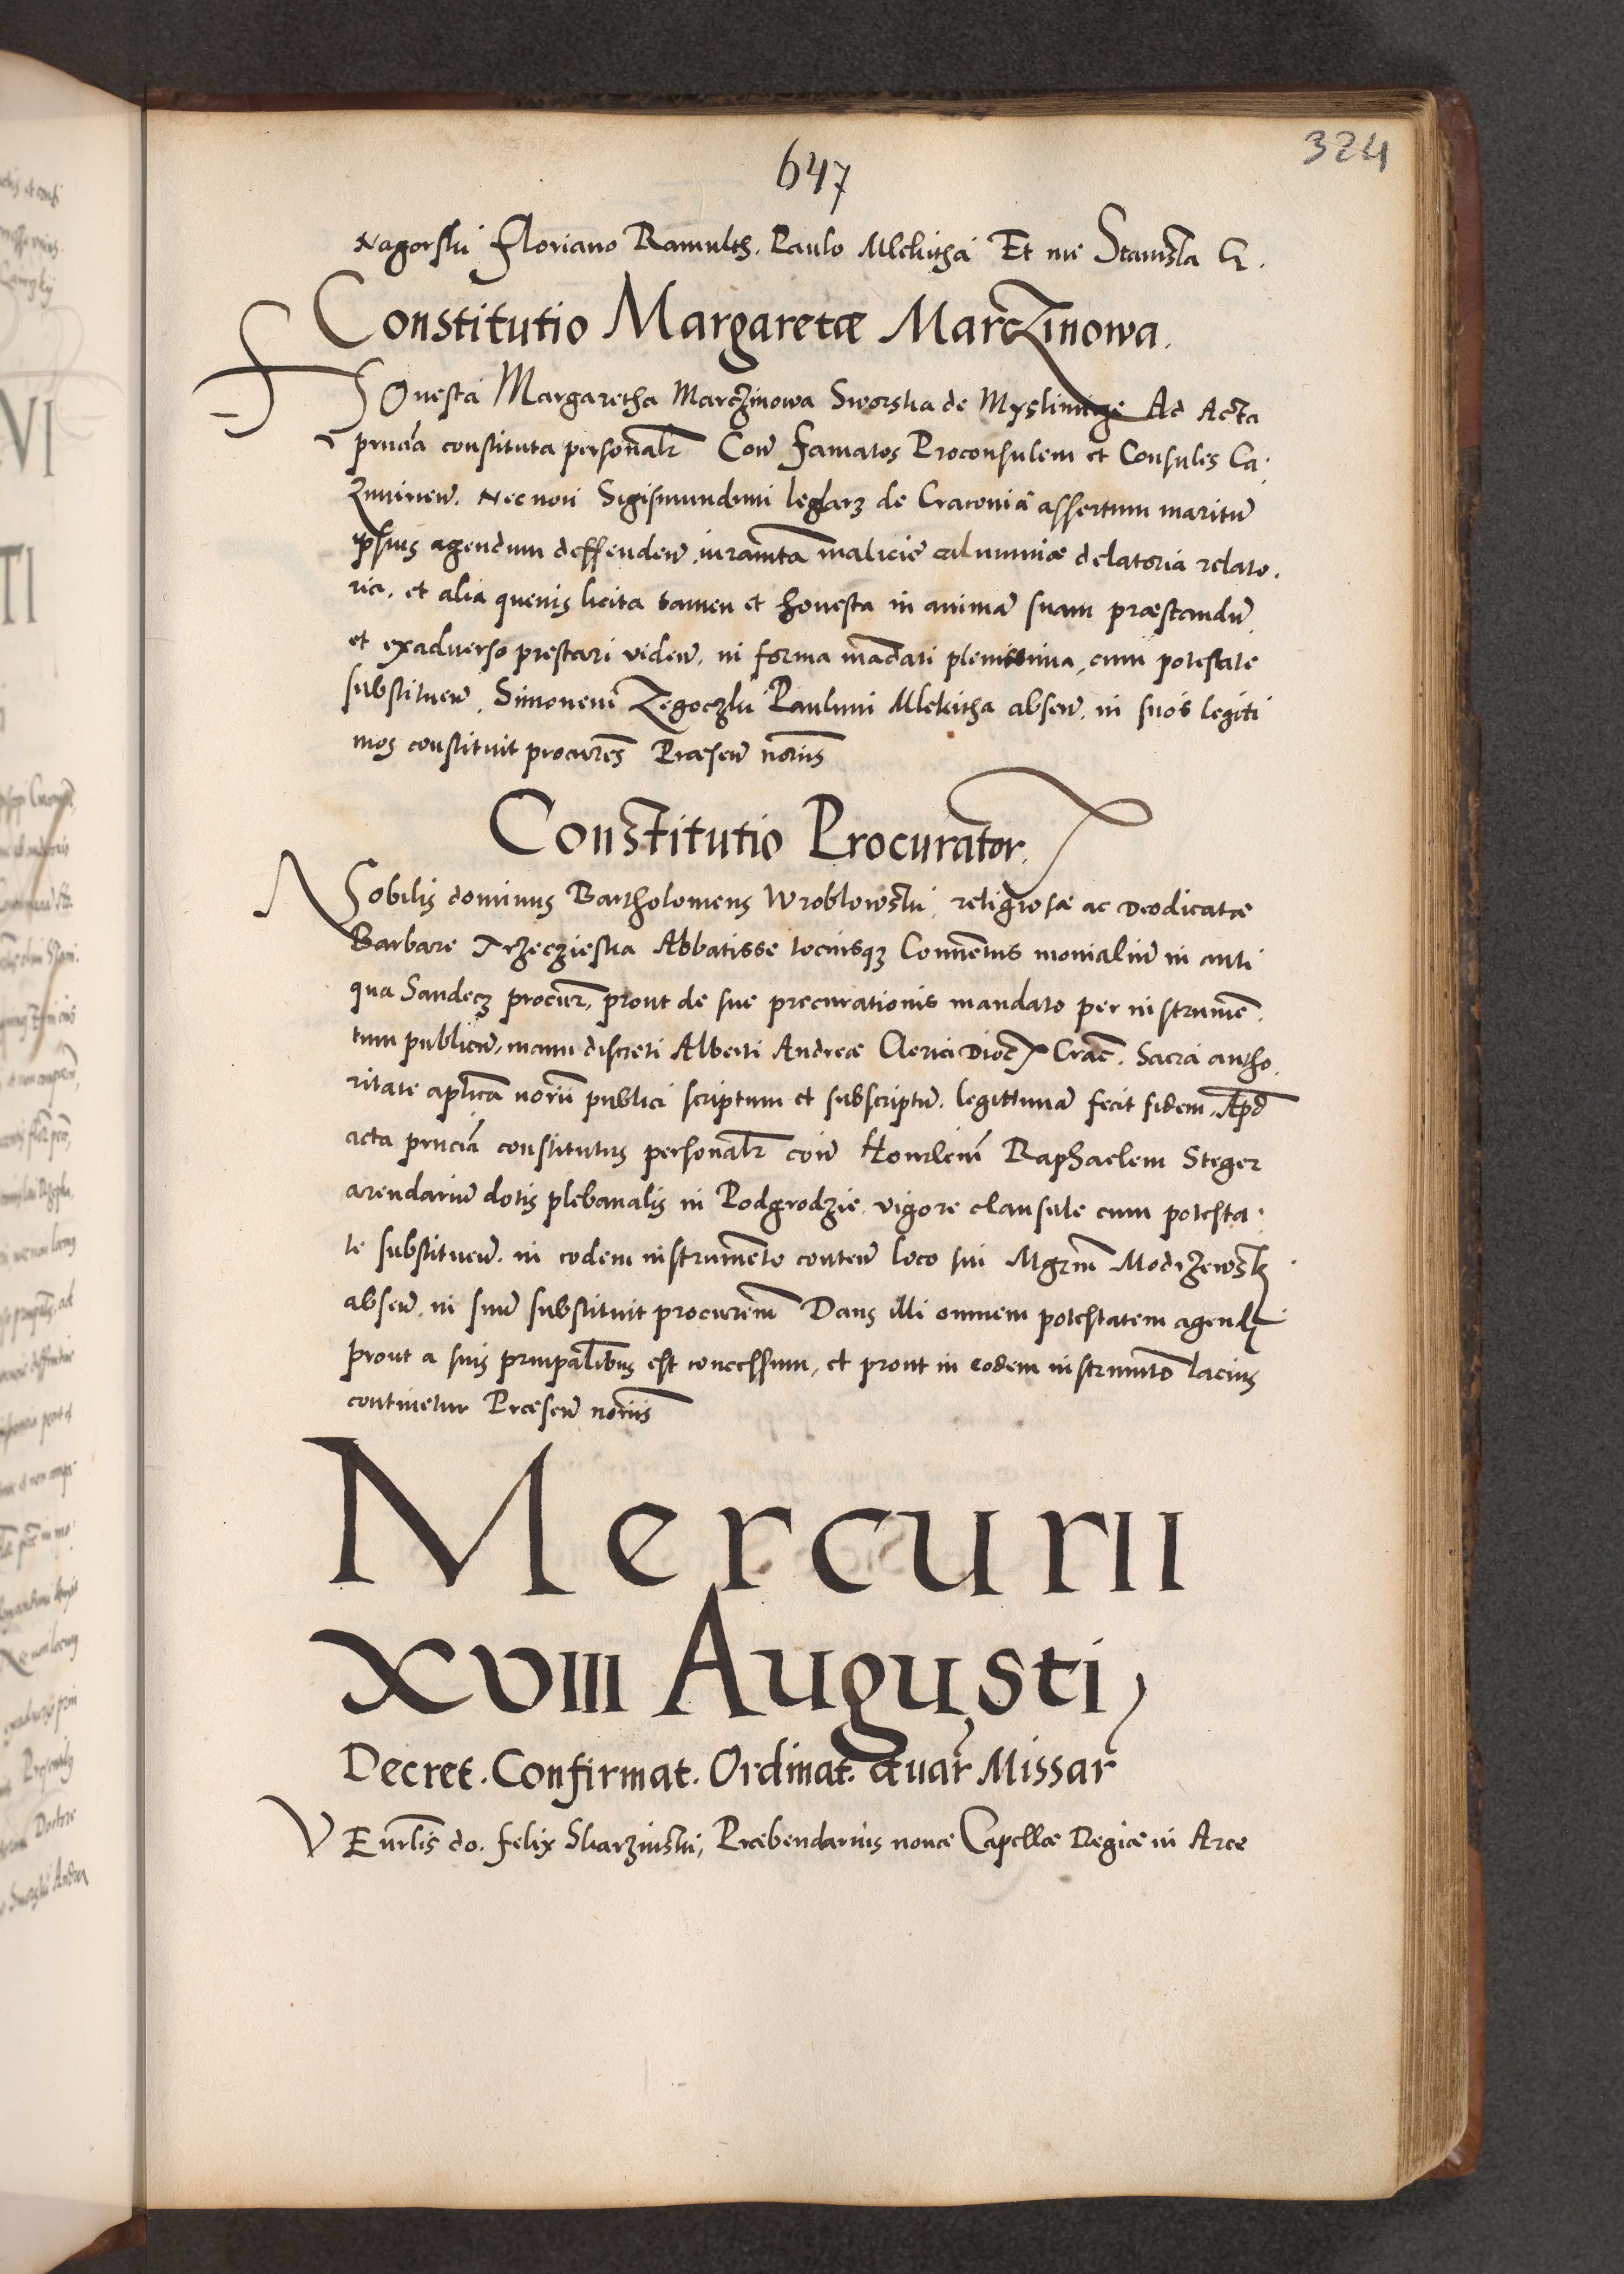 324
647
Nagorski Floriano Ramulth. Paulo Mlekitha Et me Stanisla G.
Constitutio Margaretæ Marczinowa.
HOnesta Margaretha Marczinowa Sworska de Myslimicze Ad Acta
pncia constituta personalr Con famatos Proconsulem et Consules Ca
zmirien. Necnon Sigismundum leglarz de Cracovia assertum maritu
ipsius agendum deffenden. iuramta malicie calumniæ delatoria relato.
ria. et alia quevis licita tamen et honesta in anima suam præstandu
et exadverso prestari viden. in forma madati plenissima, cum potestate
substituen. Simonem Zegoczki Paulum Mlekitha absen. in suos legiti
mos constituit procures Præsen noriis
Constitutio Procurator.
Nobilis dominus Bartholomeus Wroblowski, religiosæ ac Deodicatæ
Barbare Trzeczieska Abbatisse tociusqz Conventus monialiu in anti
qua Sandecz procur, prout de sue procurationis mandato per instrume.
tum publicu, manu discreti Alberti Andreæ Clerici Dioc Crac. Sacra autho.
ritate aplica norii publici scriptum et subscriptu. legittima fecit fidem. Apd
acta pncia constitutus personalr con Honrlem Raphaelem Steger
arendariu dotis plebanalis in Podgrodzie, vigore clausule cum potesta.
te substituen. in eodem instrumeto conten loco sui Mgrm Modrzewsk
absen. in suu substituit procurem Dans illi omnem potestatem agendi
prout a suis prnpalibus est concessum, et prout in eodem instrumto lacius
continetur Præsen noriis
Mercurii
XVIII Augusti,
Decret. Confirmat. Ordinat. duar Missar
VEnrlis do. Felix Skarzinski, Præbendarius novæ Capellæ Regiæ in Arce